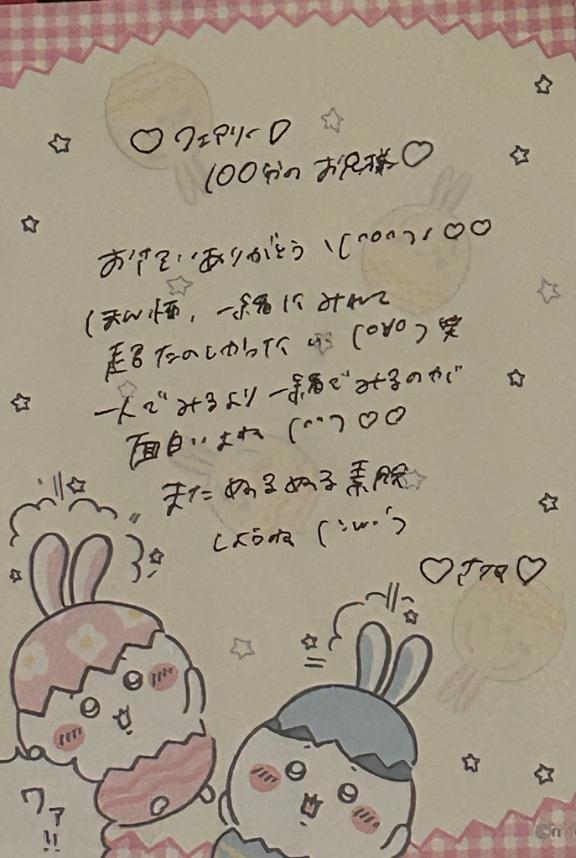 ♡フェアリー♡
100分のお兄様♡
おさそいありがとう \(^o^)/ ♡♡
一緒にみれて
超たのしかった (o∀o) 笑
一人でみるより一緒でみるのが
面白いよね (^^) ♡♡
また ぬるぬる素股
しようね ( ˙ω˙ )
♡ ♡
ワァ
!!